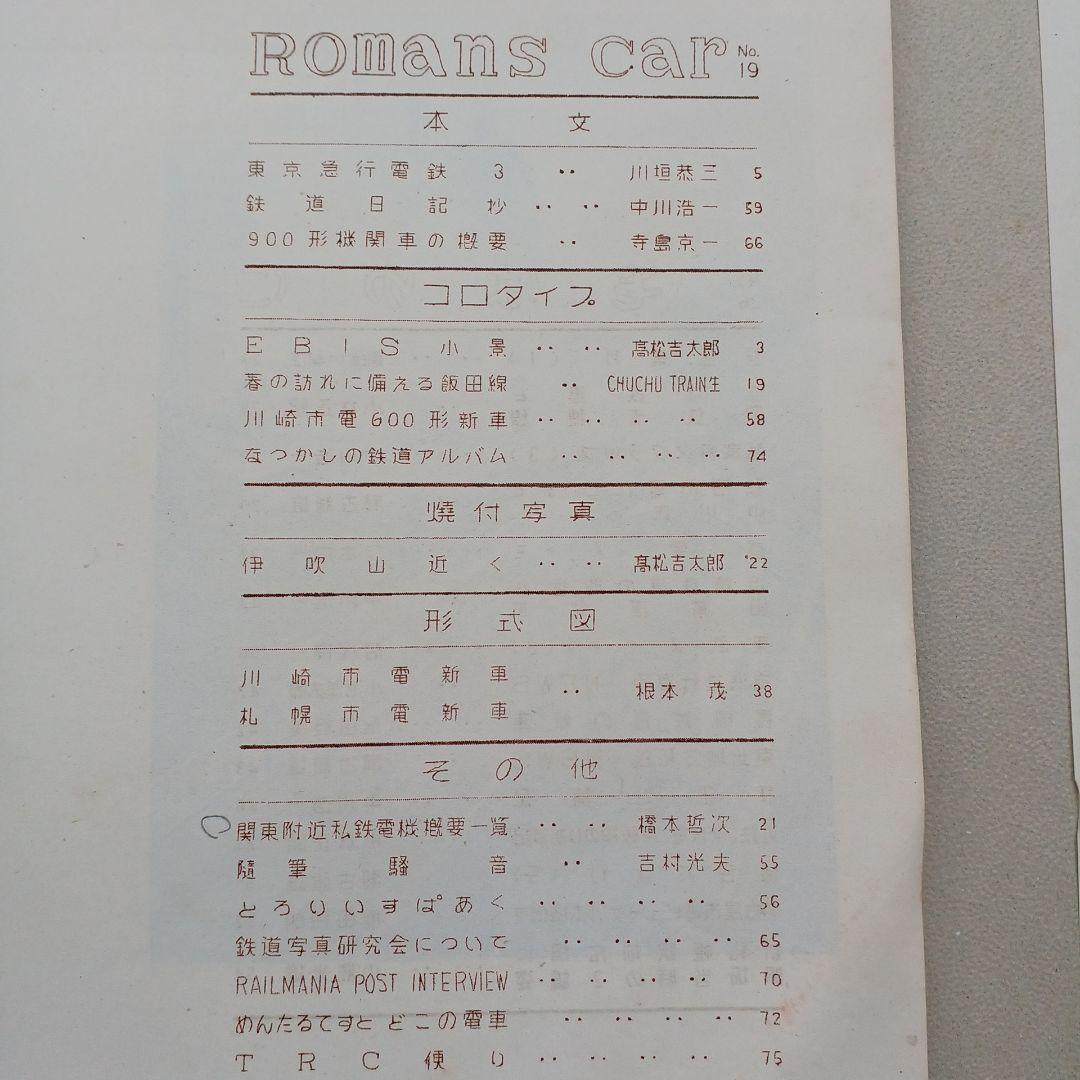 Romans car No. 19
本文
東京急行電鉄 3 ‥ 川垣恭三 5
鉄道日記抄 ‥ ‥ 中川浩一 59
900形機関車の概要 ‥ 寺島京一 66
コロタイプ
EBIS小景 ‥ ‥ 髙松吉太郎 3
春の訪れに備える飯田線 ‥ CHUCHU TRAIN生 19
川崎市電600形新車 ‥ ‥ ‥ ‥ 58
なつかしの鉄道アルバム ‥ ‥ ‥ ‥ 74
燒付写真
伊吹山近く ‥ ‥ 髙松吉太郎 22
形式図
川崎市電新車
札幌市電新車 ‥ 根本茂 38
その他
関東附近私鉄電機概要一覧 ‥ ‥ 橋本哲次 21
随筆 騒音 ‥ 吉村光夫 55
とろりいすぱあく ‥ ‥ ‥ ‥ 56
鉄道写真研究会について ‥ ‥ ‥ ‥ 65
RAILMANIA POST INTERVIEW ‥ ‥ ‥ ‥ 70
めんたるてすと どこの電車 ‥ ‥ ‥ ‥ 72
TRC便り ‥ ‥ ‥ ‥ 75